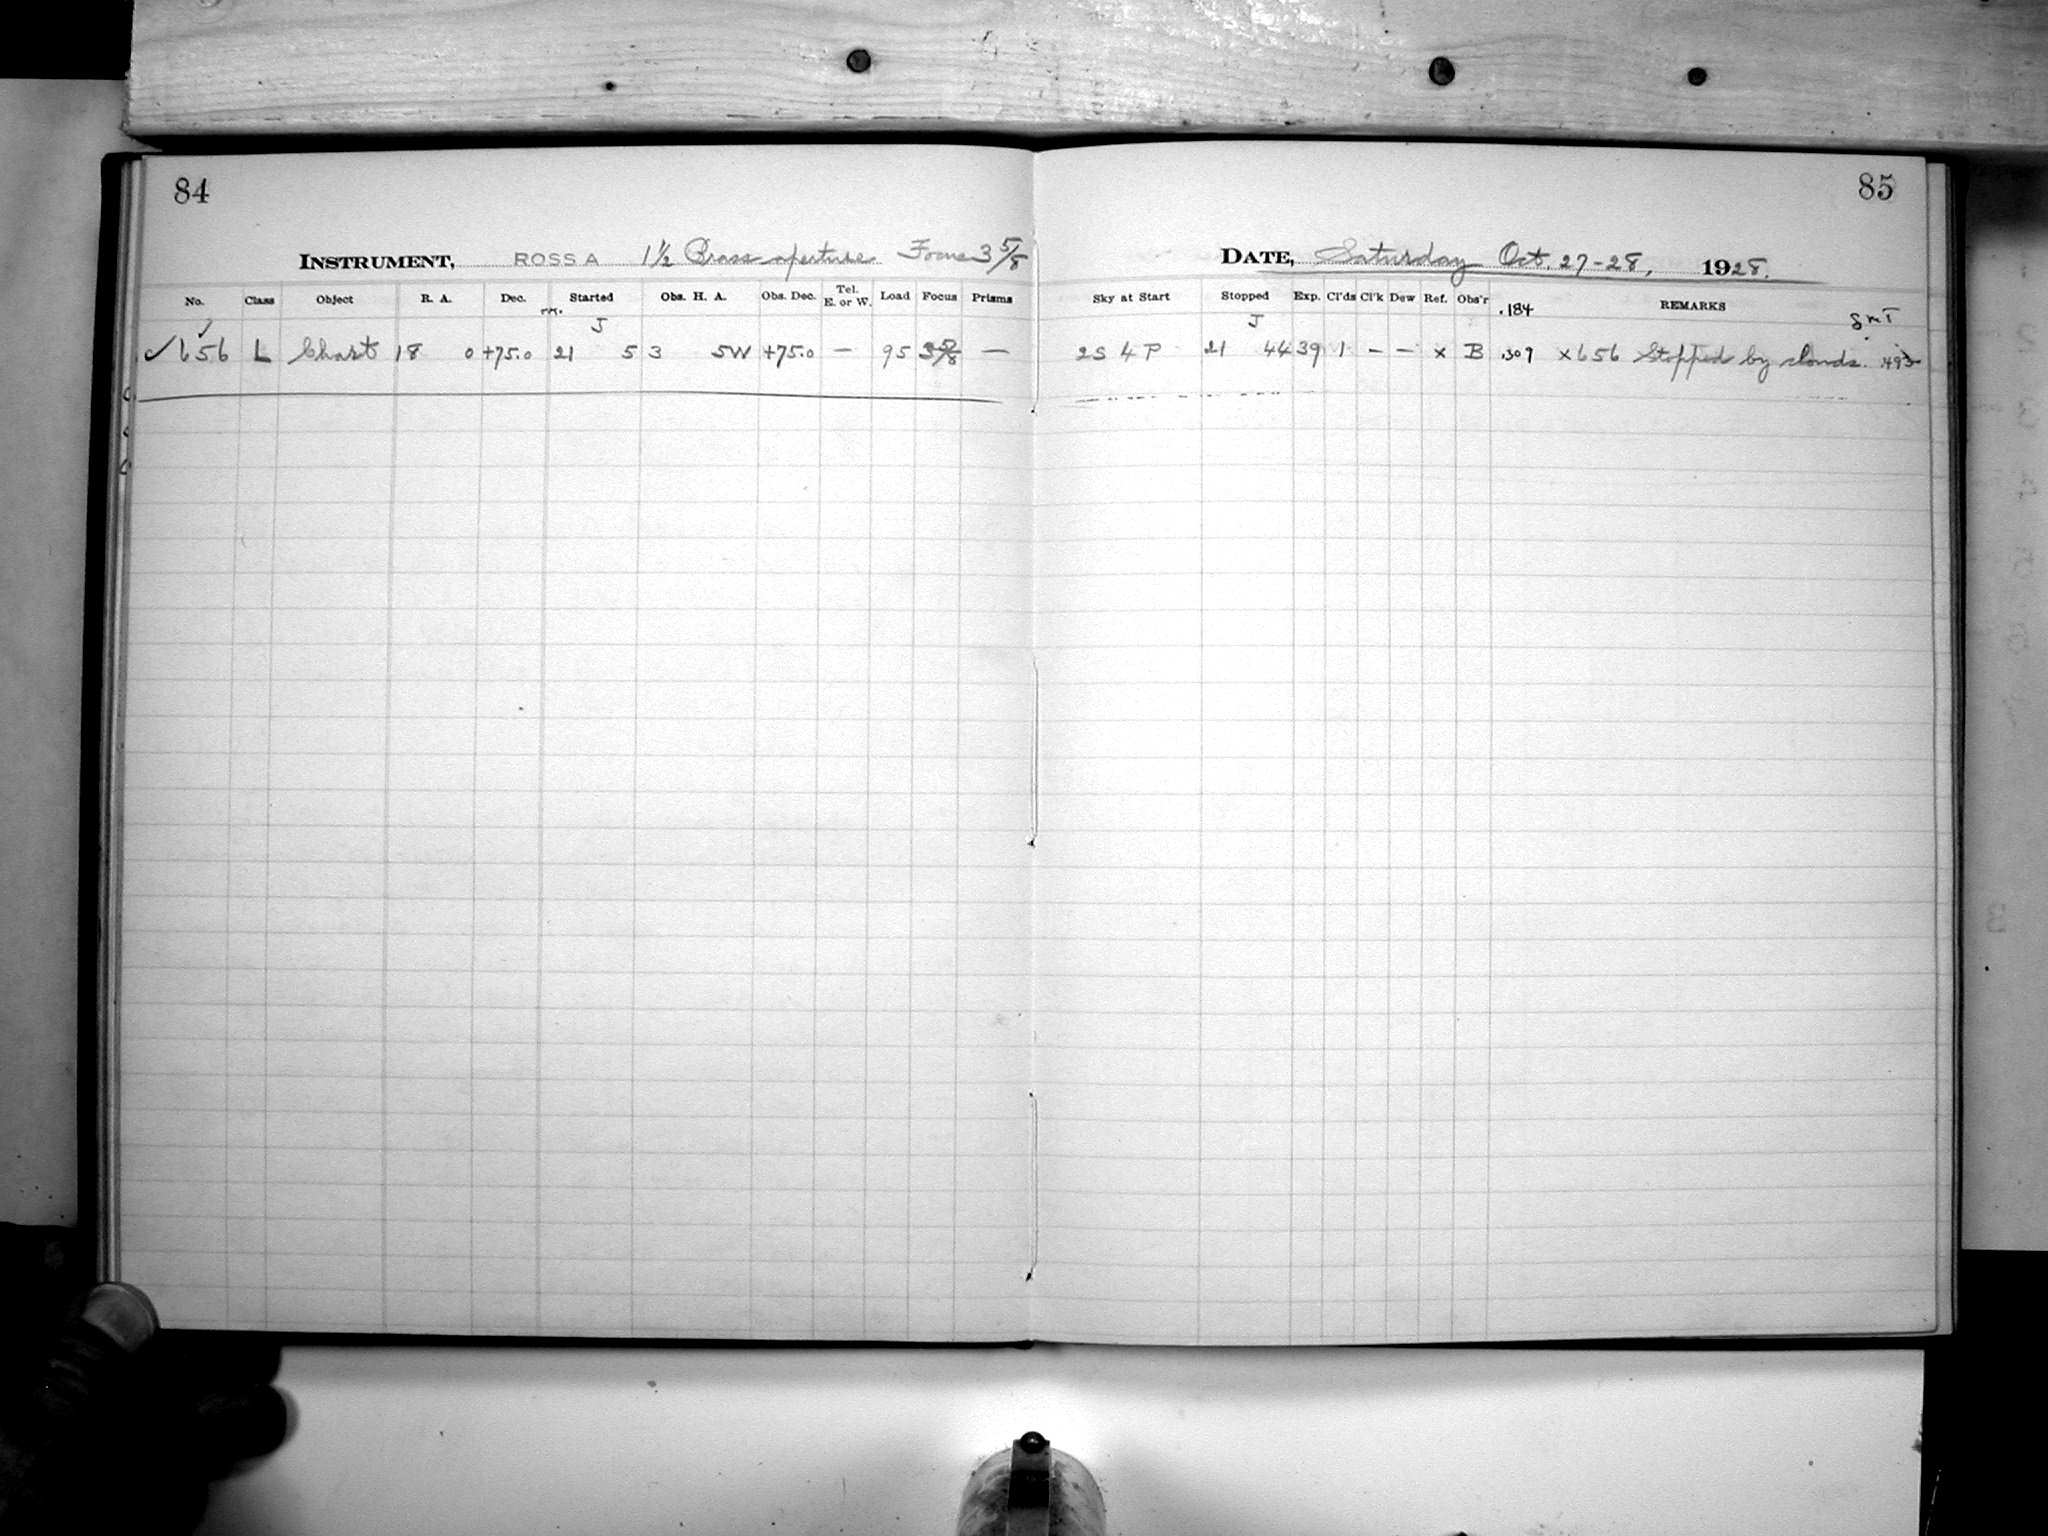 84
INSTRUMENT, ROSS A 1½ Brass aperture Focus 3 5/8
No. Class Object R. A. Dec. Started Obs. H. A. Obs. Dec. Tel. E. or W. Load Focus Prisms
J
✓ 656 L Chart 18 0 +75.0 21 5 3 5W +75.0 — 95 3 5/8 —
85
DATE, Saturday Oct. 27-28, 1928.
Sky at Start Stopped Exp. Cl'ds Cl'k Dew Ref. Obs'r .184 REMARKS
J GMT
2S 4 P 21 44 39 1 — — x B .309 x 656 Stopped by clouds. .493